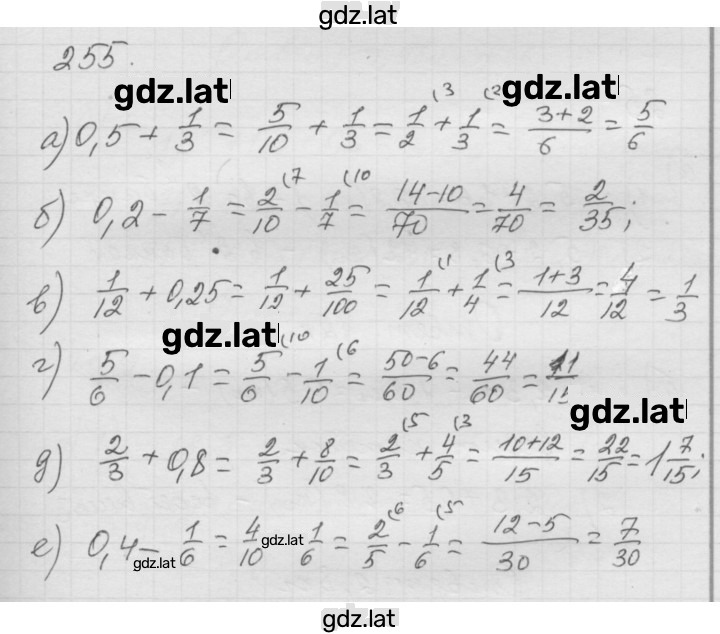 gdz.lat
255.
gdz.lat gdz.lat
а) 0,5 + 1/3 = 5/10 + 1/3 = 1/2 (3 + 1/3 (2 = 3+2/6 = 5/6
б) 0,2 - 1/7 = 2/10 (7 - 1/7 (10 = 14-10/70 = 4/70 = 2/35;
в) 1/12 + 0,25 = 1/12 + 25/100 = 1/12 (1 + 1/4 (3 = 1+3/12 = 4/12 = 1/3
gdz.lat
г) 5/6 - 0,1 = 5/6 (10 - 1/10 (6 = 50-6/60 = 44/60 = 11/15
gdz.lat
д) 2/3 + 0,8 = 2/3 + 8/10 = 2/3 (5 + 4/5 (3 = 10+12/15 = 22/15 = 1 7/15;
е) 0,4 - 1/6 = 4/10 gdz.lat 1/6 = 2/5 (6 - 1/6 (5 = 12-5/30 = 7/30
gdz.lat
gdz.lat